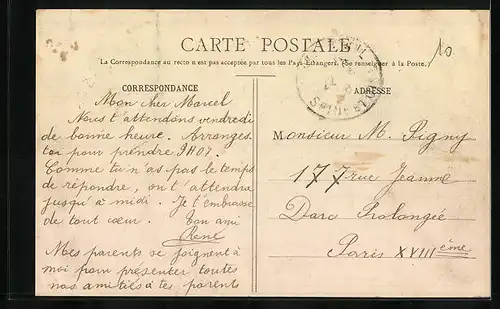 10
CARTE POSTALE
La Correspondance au recto n'est pas acceptée par tous les Pays Etrangers. (Se renseigner à la Poste.)
CORRESPONDANCE
Mon cher Marcel
Nous t'attendons vendredi
de bonne heure. Arranges
toi pour prendre 9H07.
Comme tu n'as pas le temps
de répondre, on t'attendre
jusqu'à midi. Je t'embrasse
de tout cœur. Ton ami
René
Mes parents se joignent à
moi pour présenter toutes
nos amitiés à tes parents
ADRESSE
Monsieur M. Pigny
177 rue Jeanne
Darc Prolongée
Paris XVIIIème